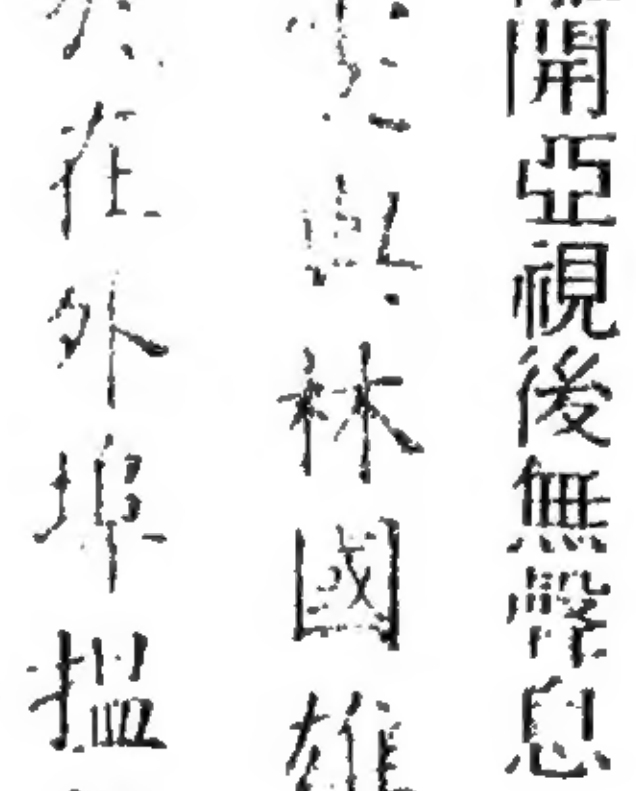 開亞視後無聲息
與林國雄
在外埠搵